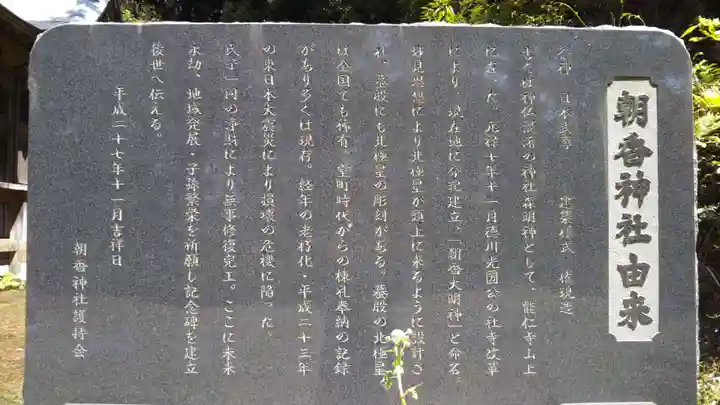 朝香神社由来
祭神 日本武尊 建築様式 権現造
古くは神仏混淆の神社森明神として、能仁寺山上
に在った。元禄十年十一月徳川光圀公の社寺改革
により、現在地に分祀建立。「朝香大明神」と命名。
妙見思想により北極星が頭上に来るように設計さ
れ、蟇股にも北極星の彫刻がある。蟇股の北極星
は全国でも稀有。室町時代からの棟札奉納の記録
があり多くは現存。経年の老朽化・平成二十三年
の東日本大震災により損壊の危機に陥った。
氏子一同の浄財により無事修復完工。ここに未来
永劫、地域発展・子孫繁栄を祈願し記念碑を建立
後世へ伝える。
平成二十七年十一月吉祥日
朝香神社護持会